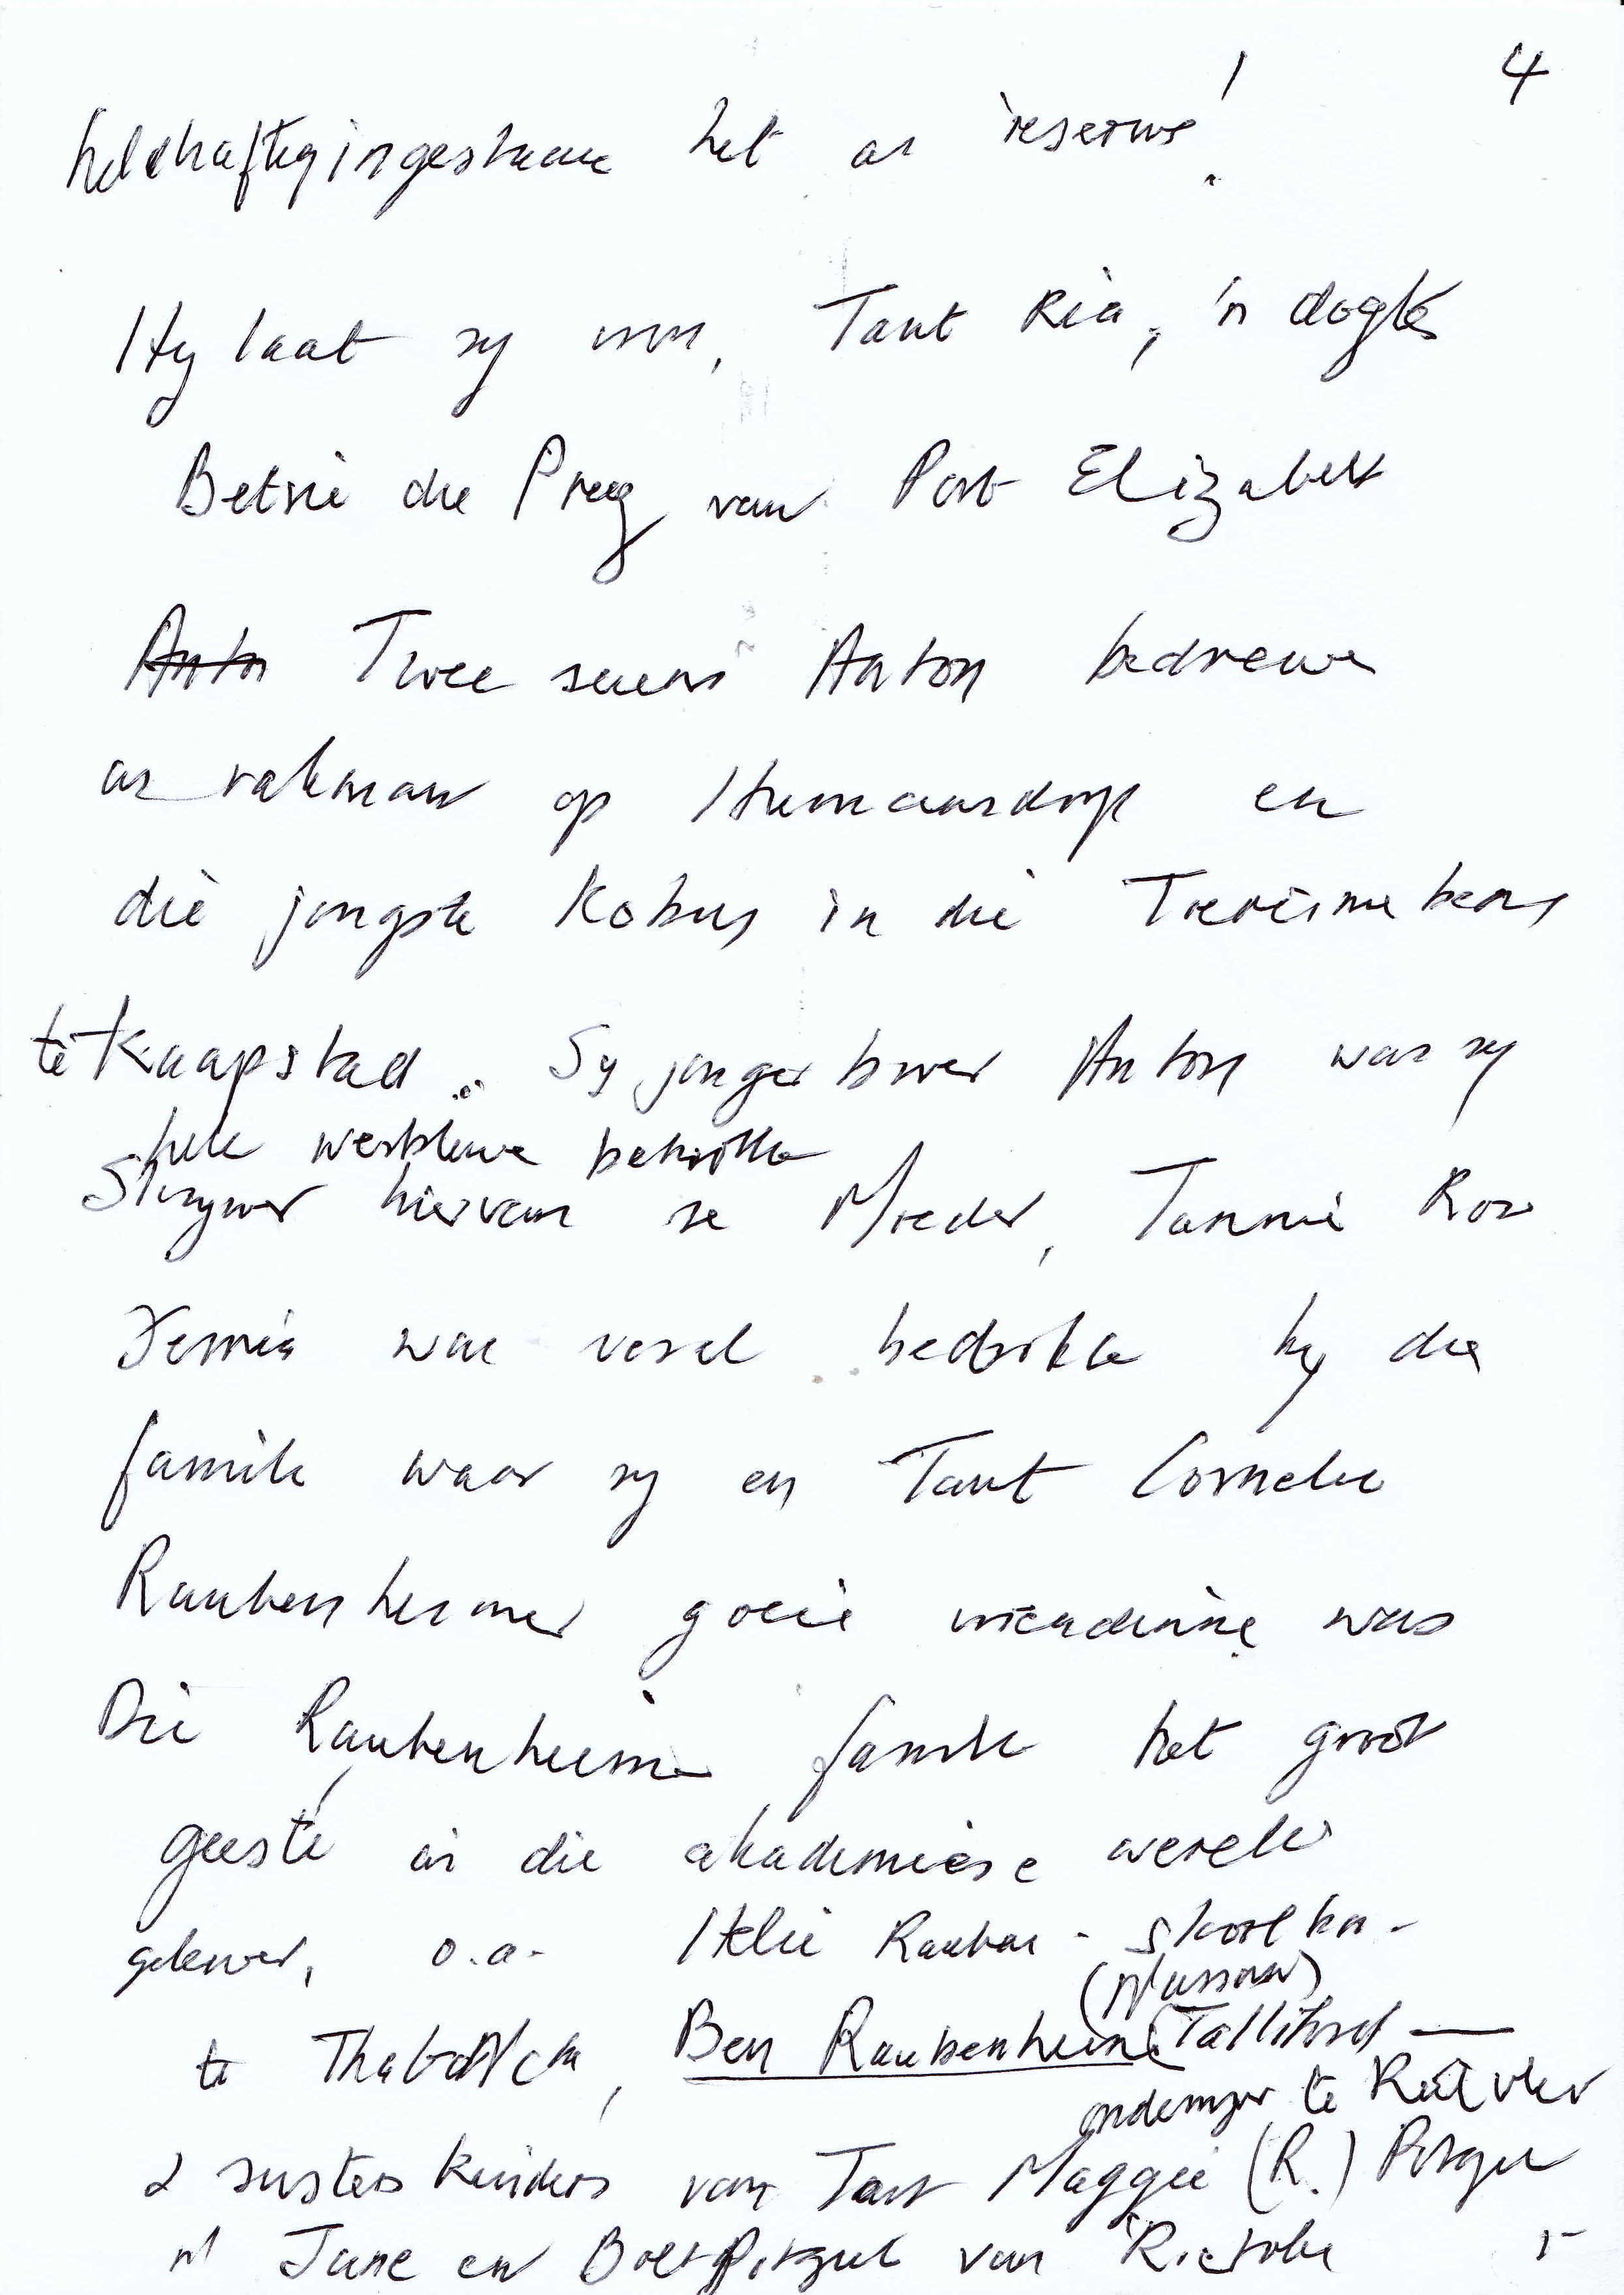 4
heldhaftig ingestaan het as reserwe!
Hy laat sy vrou, Tant Ria, 'n dogter
Betsie du Preez van Port Elizabeth
Anton Twee seuns Anton bedrewe
as vakman op Humansdorp en
die jongste Kobus in die Toerisme
te Kaapstad. Sy jonger broer Anton was sy
hele werklewe betrokke
Skrywer hiervan se Moeder, Tannie Rose
was veral bedrokke by die
familie waar sy en Tant Cornelie
Raubenheimer goeie vriendinne was
Die Raubenheimer familie het groot
geeste in die akademiese wereld
gelewer, o.a. Helie Rauben - skoolhn-
te Thabo Nchu, Ben Raubenheime
onderwyser te Rietvlei
2 susters kinders van Tant Maggie (R.)
nl June en van